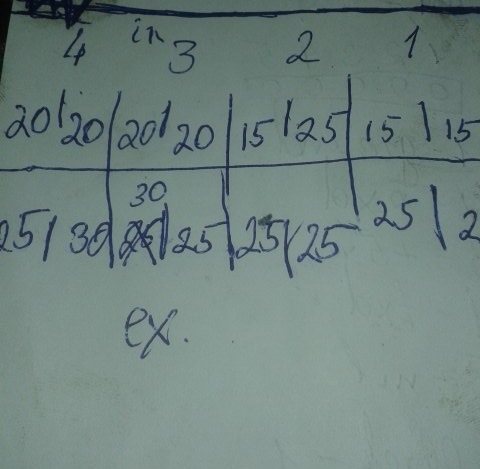 4 in 3 2 1
20 | 20 | 20 | 20 | 15 | 25 | 15 | 15
30
25 | 30 | 25 | 25 | 25 | 25 | 25 | 2
ex.